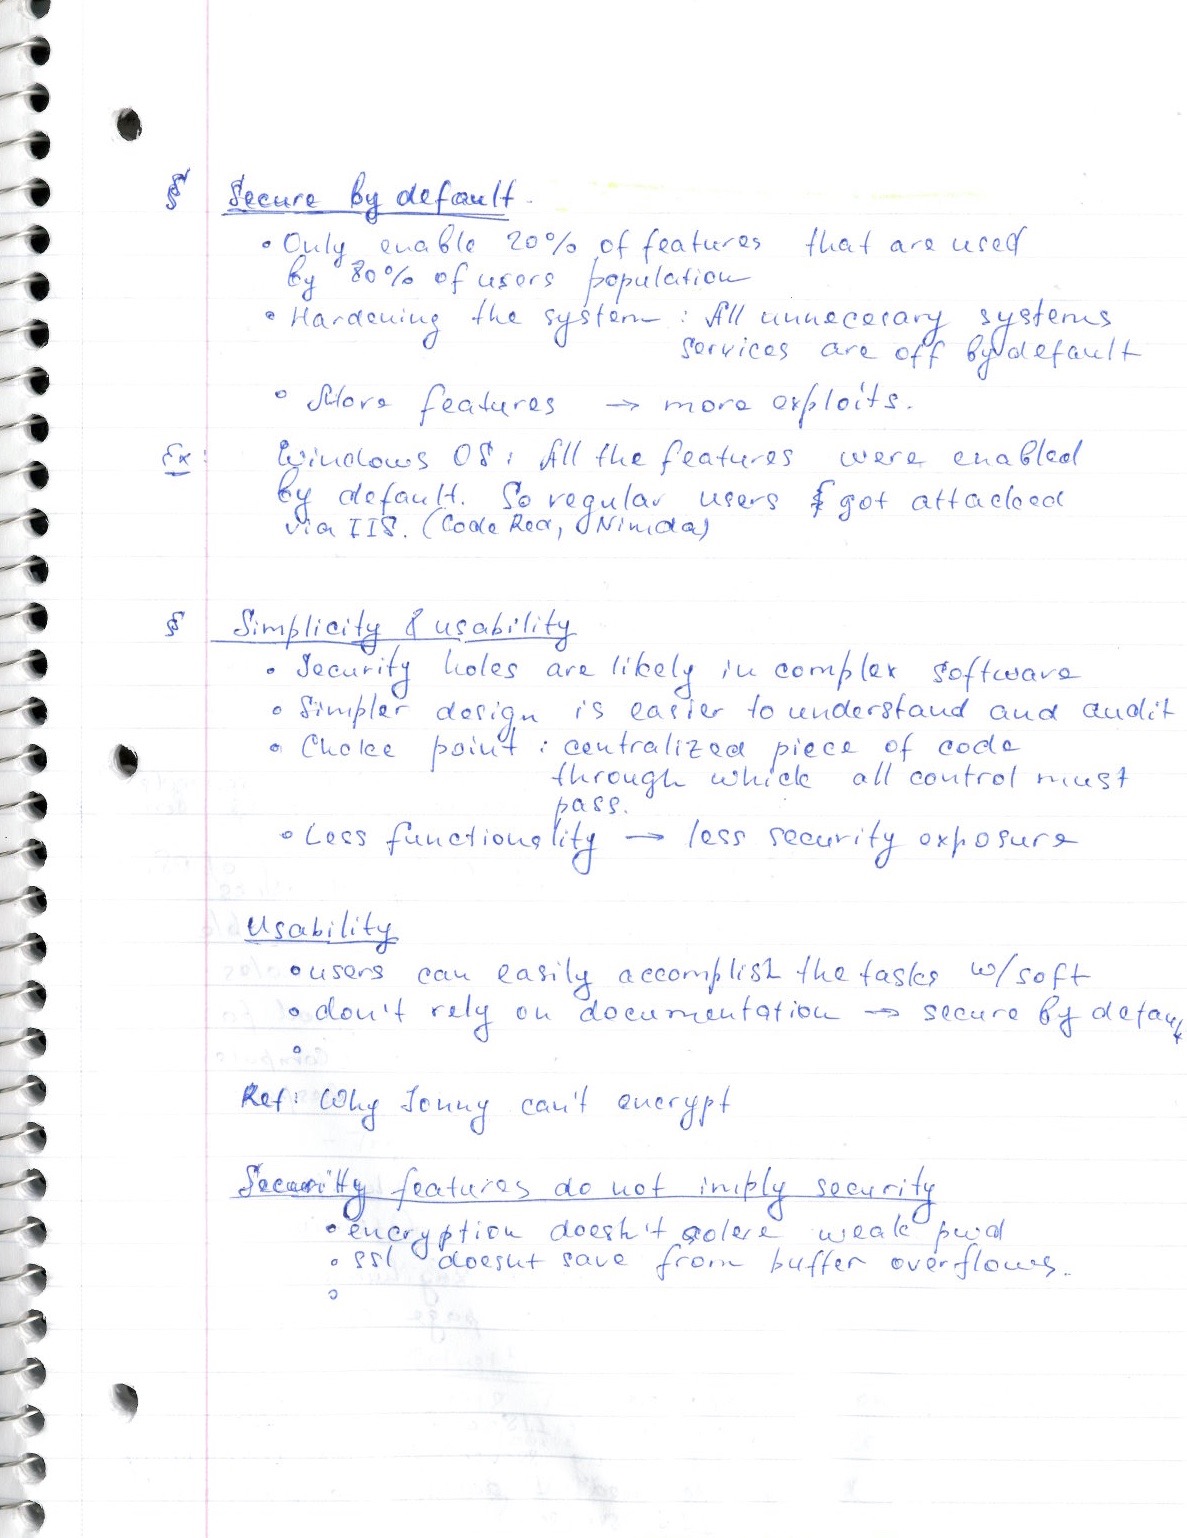 § Secure by default.
• Only enable 20% of features that are used
by 80% of users population
• Hardening the system : All unnecesary systems
services are off by default
• More features → more exploits.
Ex: Windows OS: All the features were enabled
by default. So regular users got attacked
via IIS. (Code Red, Nimda)
§ Simplicity & usability
• Security holes are likely in complex software
• Simpler design is easier to understand and audit
• Choke point : centralized piece of code
through which all control must
pass.
• Less functionality → less security exposure
Usability
• users can easily accomplish the tasks w/soft
• don't rely on documentation → secure by default
•
Ref: Why Jonny can't encrypt
Security features do not imply security
• encryption doesn't solve weak pwd
• ssl doesnt save from buffer overflows.
•